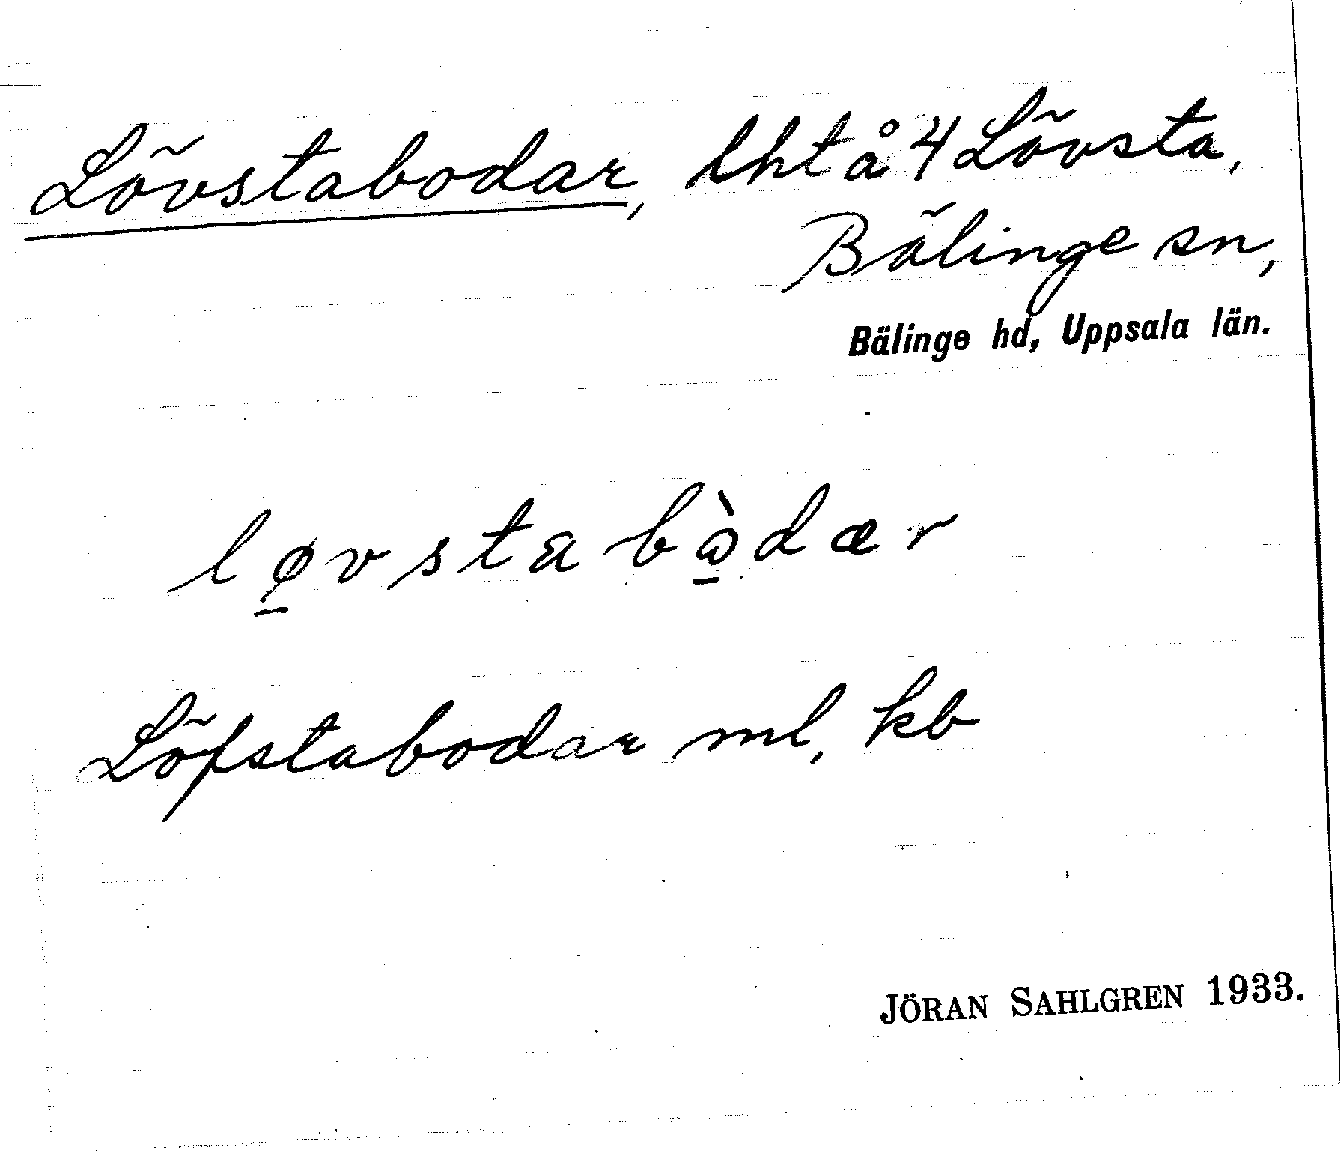 Lövstabodar, lht å 4 Lövsta,
Bälinge sn,
Bälinge hd, Uppsala län.
lø̱vstabὼ̱dær
Löfstabodar ml, kb
JÖRAN SAHLGREN 1933.